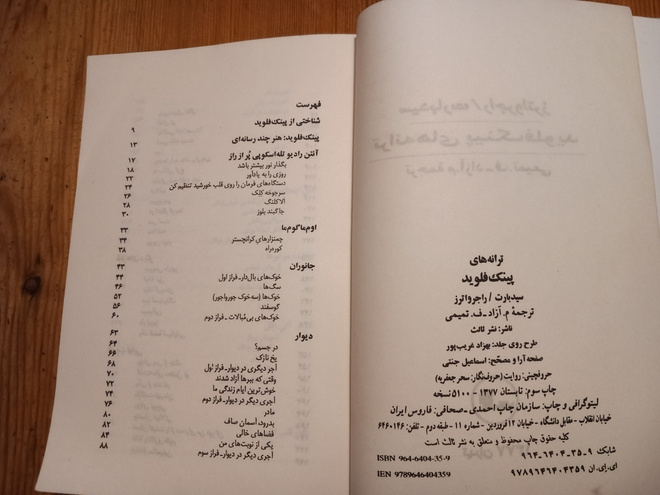 ترانه‌های
پینک‌فلوید
سیدبارت / راجرواترز
ترجمهٔ م. آزاد ـ ف. تمیمی
ناشر: نشر ثالث
طرح روی جلد: بهزاد غریب‌پور
صفحه آرا و مصحّح: اسماعیل جنتی
حروفچینی: روایت (حروف‌نگار: سحر جعفریه)
چاپ سوم: تابستان ۱۳۷۷ - ۵۱۰۰ نسخه
لیتوگرافی و چاپ: سازمان چاپ احمدی ـ صحافی: فاروس ایران
خیابان انقلاب - مقابل دانشگاه - خیابان ۱۲ فروردین - شماره ۱۱ - طبقه دوم - تلفن: ۶۴۶۰۱۴۶
کلیه حقوق چاپ محفوظ و متعلق به نشر ثالث است
شابک ۹-۳۵-۶۴۰۴-۹۶۴ ISBN 964-6404-35-9
ای.ای.ان ۹۷۸۹۶۴۶۴۰۴۳۵۹ IEN 9789646404359
فهرست
شناختی از پینک‌فلوید ۹
پینک‌فلوید: هنر چند رسانه‌ای ۱۳
آنتن رادیو تله‌اسکوپی پُر از راز ۱۷
بگذار نور بیشتر باشد ۱۸
روزی را به یادآور ۲۲
دستگاه‌های فرمان را روی قلب خورشید تنظیم کن ۲۴
سرجوخه کلِگ ۲۶
آلاکلنگ ۲۸
جاگبند بلوز ۳۰
اوم‌ماگوم‌ما ۳۳
چمنزارهای گرانچستر ۳۴
کوره‌راه ۳۸
جانوران ۴۳
خوک‌های بال‌دار ـ فراز اول ۴۴
سگ‌ها ۴۶
خوک‌ها (سه‌خوک جورواجور) ۵۲
گوسفند ۵۶
خوک‌های بی‌مُبالات ـ فراز دوم ۶۰
دیوار ۶۳
در جسم؟ ۶۴
یخ نازک ۶۶
آجر دیگری در دیوار ـ فراز اول ۶۸
وقتی که ببرها آزاد شدند ۷۰
خوش‌ترین ایام زندگی ما ۷۲
آجری دیگر در دیوار ـ فراز دوم ۷۴
مادر ۷۶
بدرود، آسمان صاف ۸۰
فضاهای خالی ۸۲
یکی از نوبت‌های من ۸۴
آجری دیگر در دیوار ـ فراز سوم ۸۸